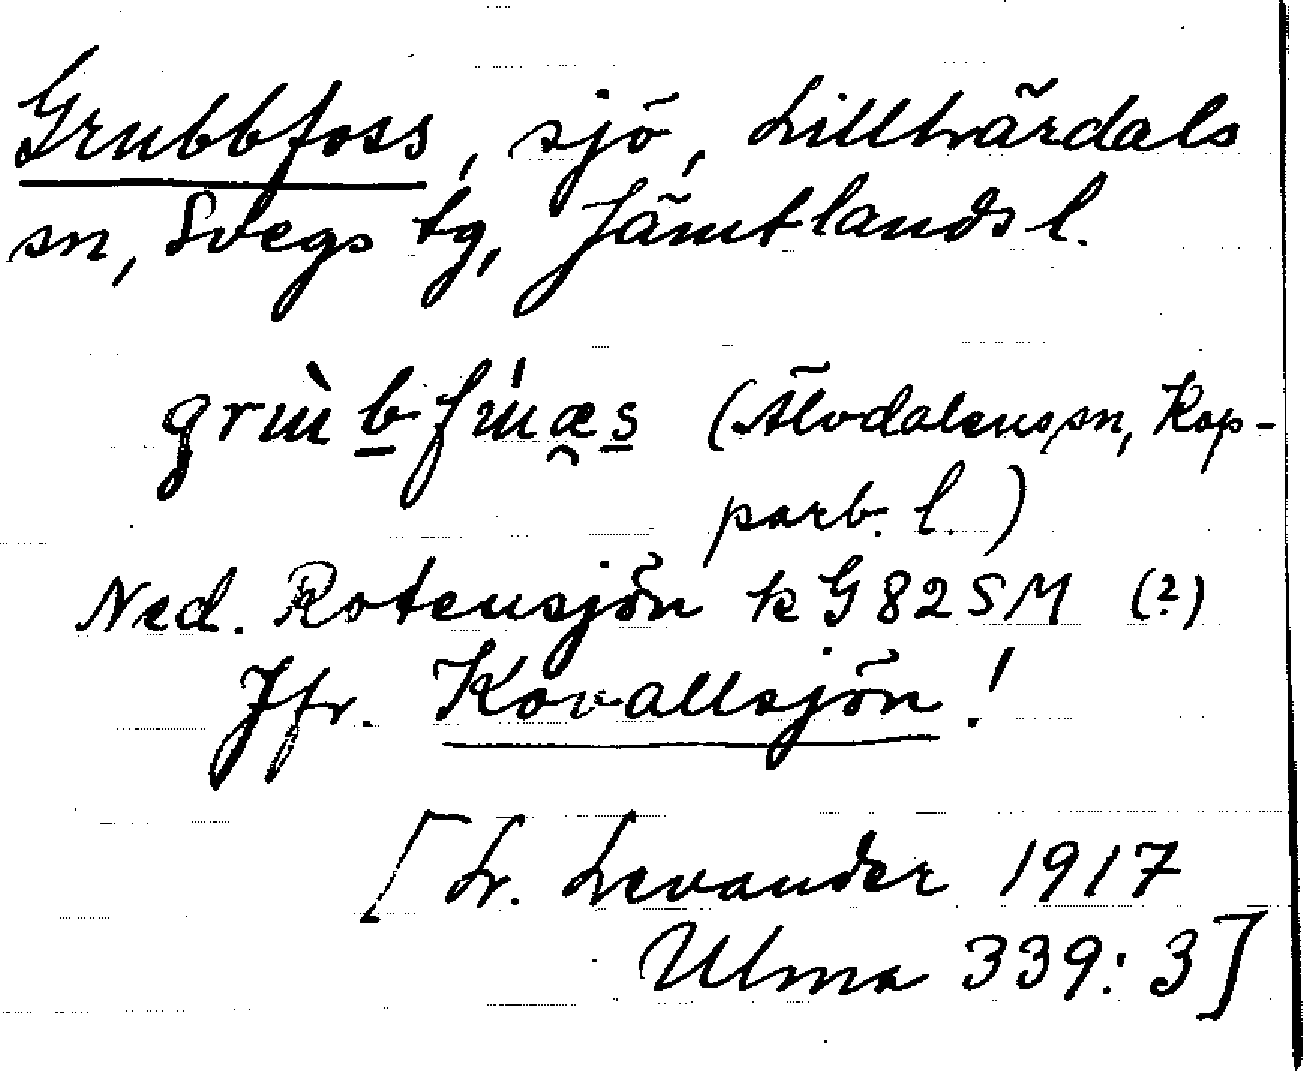 Grubbfoss, sjö, Lillhärdals
sn, Svegs tg, Jämtlands l.
(Älvdalens sn, Kop-
parb. l.)
Ned. Rotensjön k G 82 SM (?)
Jfr. Kovallsjön!
[L. Levander 1917
Ulma 339:3]